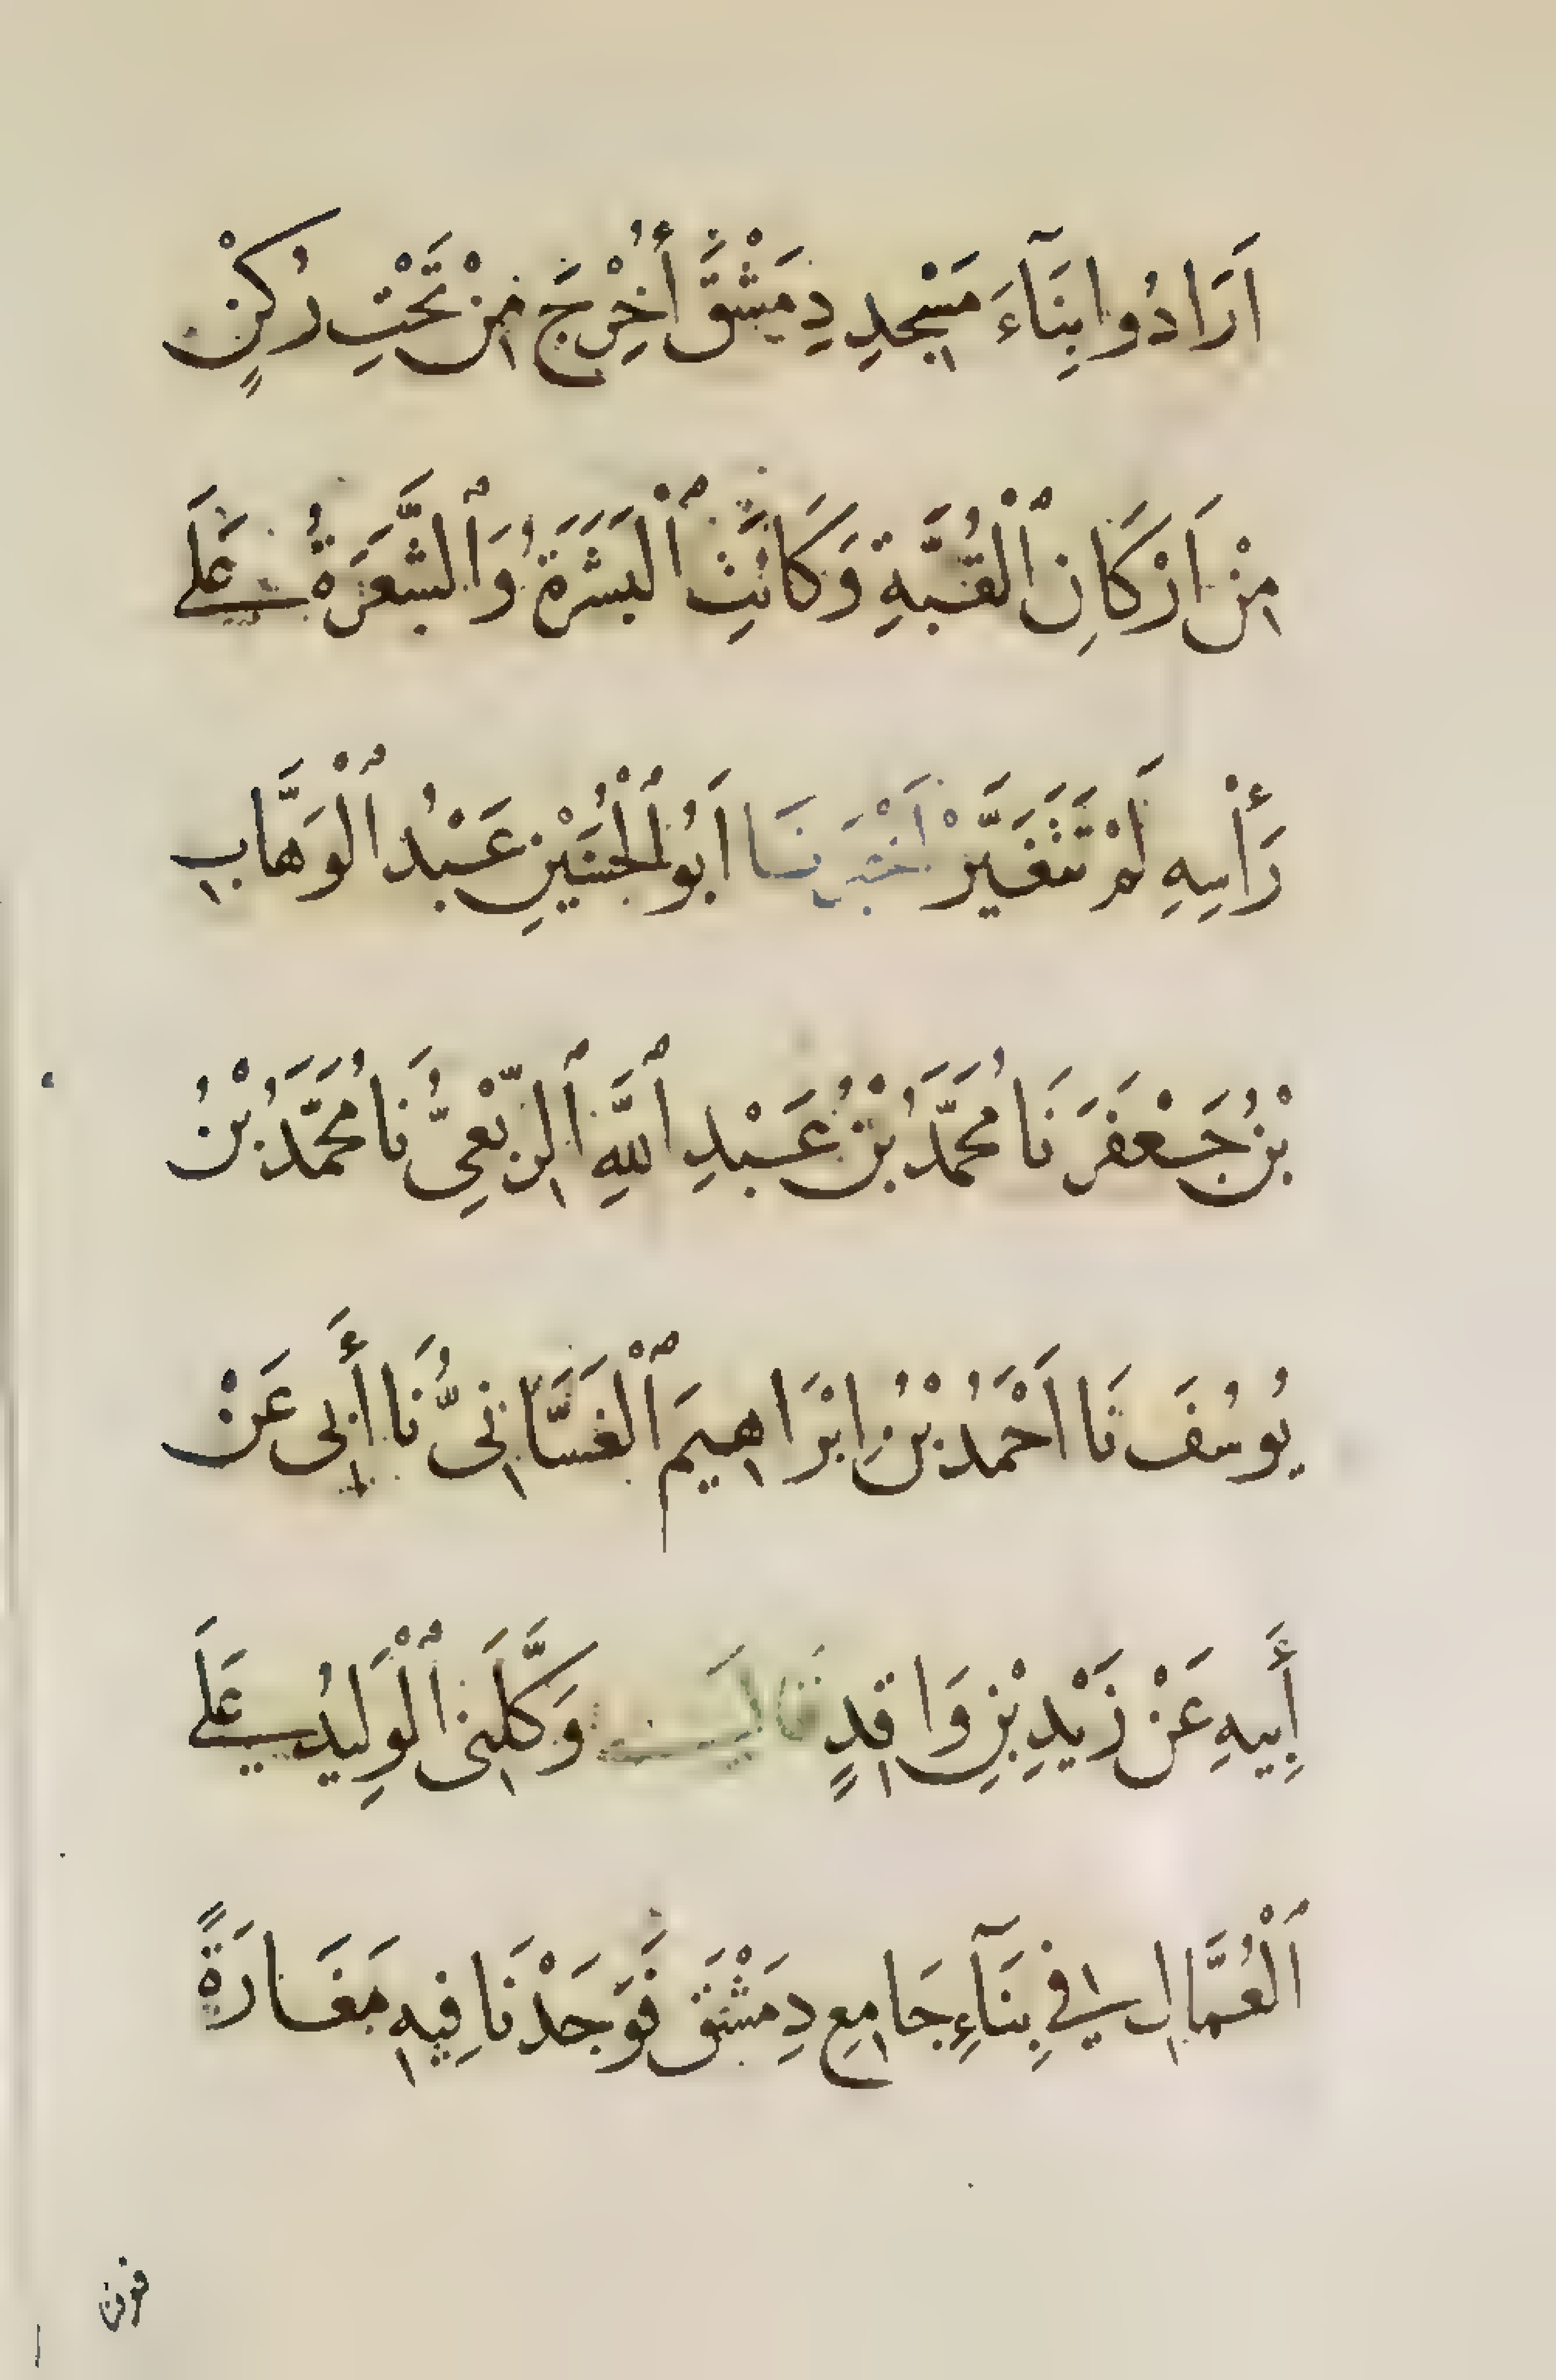 اَرَادُوا بِنَآءَ مَسْجِدِ دِمَشْقَ أُخْرِجَ مِنْ تَحْتِ رُكْنٍ
مِنْ اَرْكَانِ ٱلْقُبَّةِ وَكَانَتِ ٱلْبَشَرَةُ وَٱلشَّعَرَةُ عَلَے
رَأْسِهِ لَمْ تَتَغَيَّرْ اَخْبَرَنَا اَبُو ٱلْحُسَيْنِ عَبْدُ ٱلْوَهَّابِ
بْنُ جَعْفَرَ نَا مُحَمَّدُ بْنُ عَبْدِ ٱللَّهِ ٱلرَّبْعِىُّ نَا مُحَمَّدُ بْنُ
يُوسُفَ نَا اَحْمَدُ بْنُ اِبْرَاهِيمَ ٱلْغَسَّانِىُّ نَا أَبِى عَنْ
أَبِيهِ عَنْ زَيْدِ بْنِ وَاقِدٍ قَالَ وَكَّلَنِى ٱلْوَلِيدُ عَلَے
ٱلْعُمَّالِ فِي بِنَآءِ جَامِعِ دِمَشْقَ فَوَجَدْنَا فِيهِ مَغَارَةً
فعرفنا